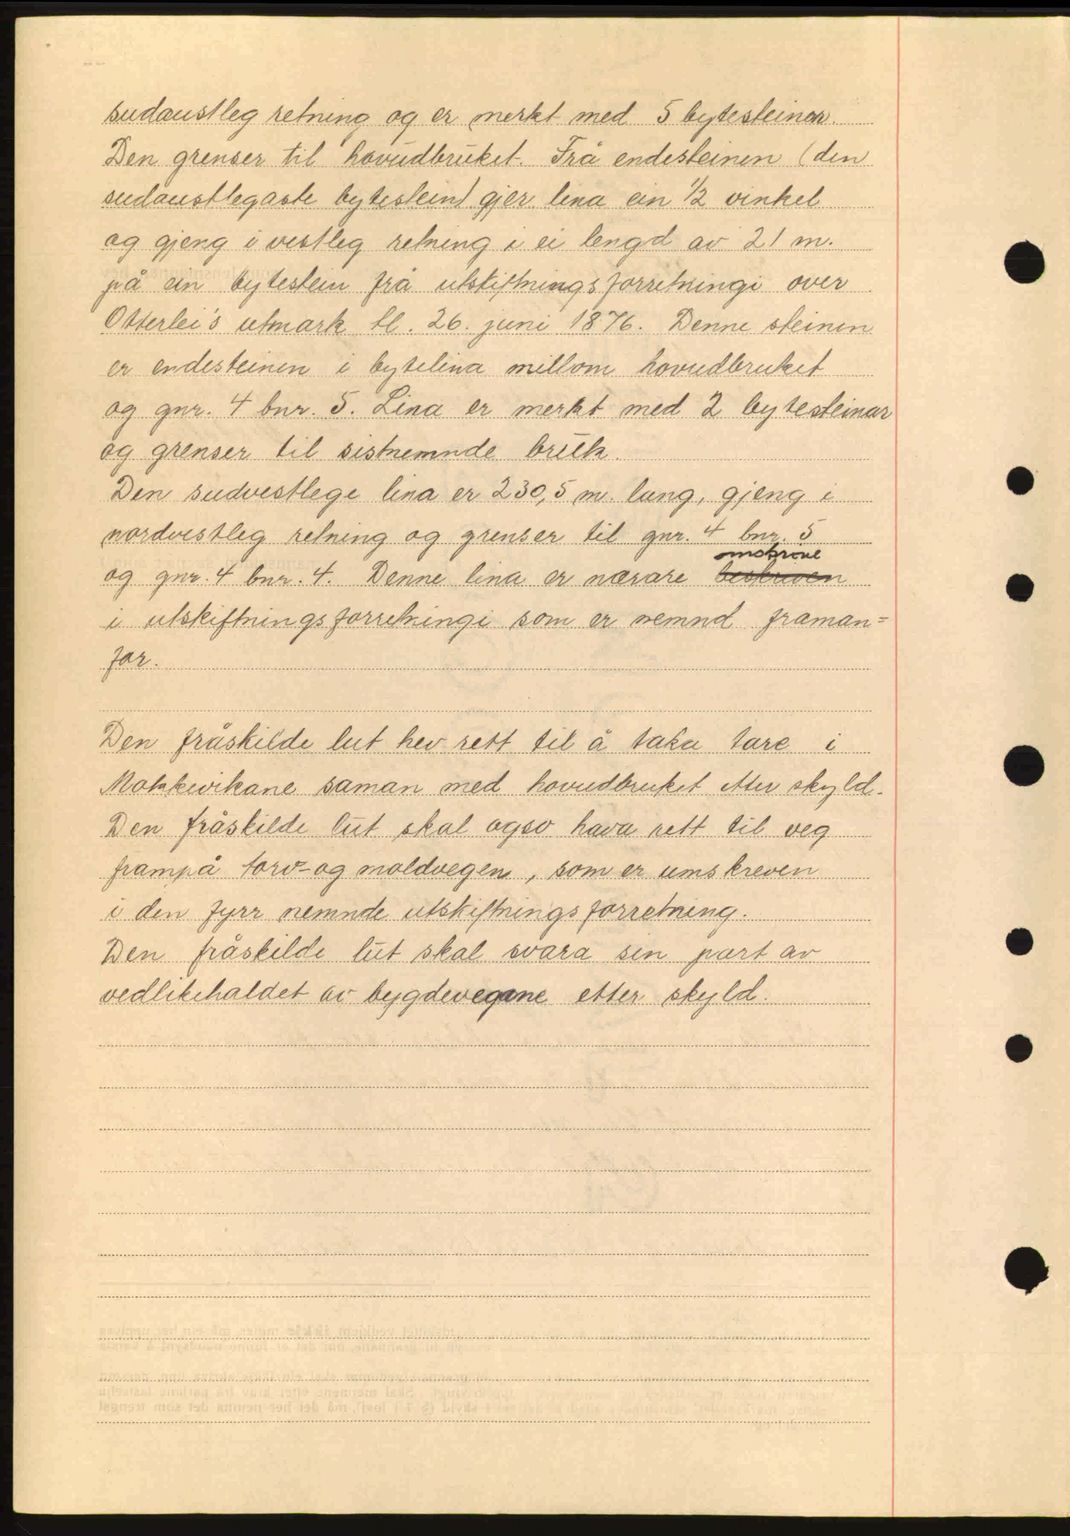 sudaustleg retning og er merkt med 5 bytesteinar.
Den grenser til hovudbruket. Frå endesteinen (den
sudaustlegaste bytestein) gjer lina ein 1/2 vinkel
og gjeng i vestleg retning i ei lengd av 21 m.
på ein bytestein frå utskiftningsforretningi over
Otterlei's utmark tl. 26. juni 1876. Denne steinen
er endesteinen i bytelina millom hovudbruket
og gnr. 4 bnr. 5. Lina er merkt med 2 bytesteinar
og grenser til sistnemnde bruk.
Den sudvestlege lina er 230,5 m. lang, gjeng i
nordvestleg retning og grenser til gnr. 4 bnr. 5
omskrove
og gnr. 4 bnr. 4. Denne lina er nærare beskriven
i utskiftningsforretningi som er nemnd framan=
for.
Den fråskilde lut hev rett til å taka tare i
saman med hovudbruket etter skyld.
Den fråskilde lut skal ogso hava rett til veg
frampå torv- og moldvegen, som er umskreven
i den fyrr nemnde utskiftningsforretning.
Den fråskilde lut skal svara sin part av
vedlikehaldet av bygdevegane etter skyld.